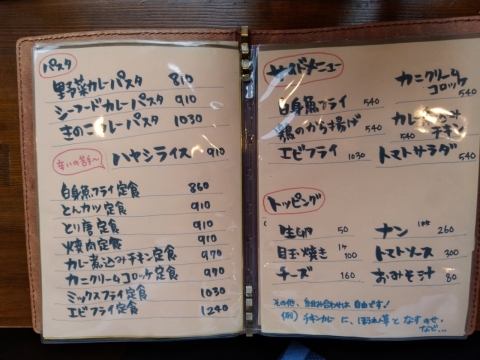 パスタ
野菜カレーパスタ 810
シーフードカレーパスタ 910
きのこカレーパスタ 1030
辛いの苦手〜
ハヤシライス 910
白身魚フライ定食 860
とんカツ定食 910
とり唐定食 910
焼肉定食 910
カレー煮込みチキン定食 970
カニクリームコロッケ定食 970
ミックスフライ定食 1030
エビフライ定食 1240
サイドメニュー
白身魚フライ 540
鶏のから揚げ 540
エビフライ 1030
カニクリームコロッケ 540
チキン 540
トマトサラダ 540
トッピング
生卵 50
目玉焼き 1ケ 100
チーズ 160
ナン 1枚 260
トマトソース 300
おみそ汁 80
その他、組み合わせは自由です!
(例) チキンカレーに、ほうれん草となすのせ、
など...